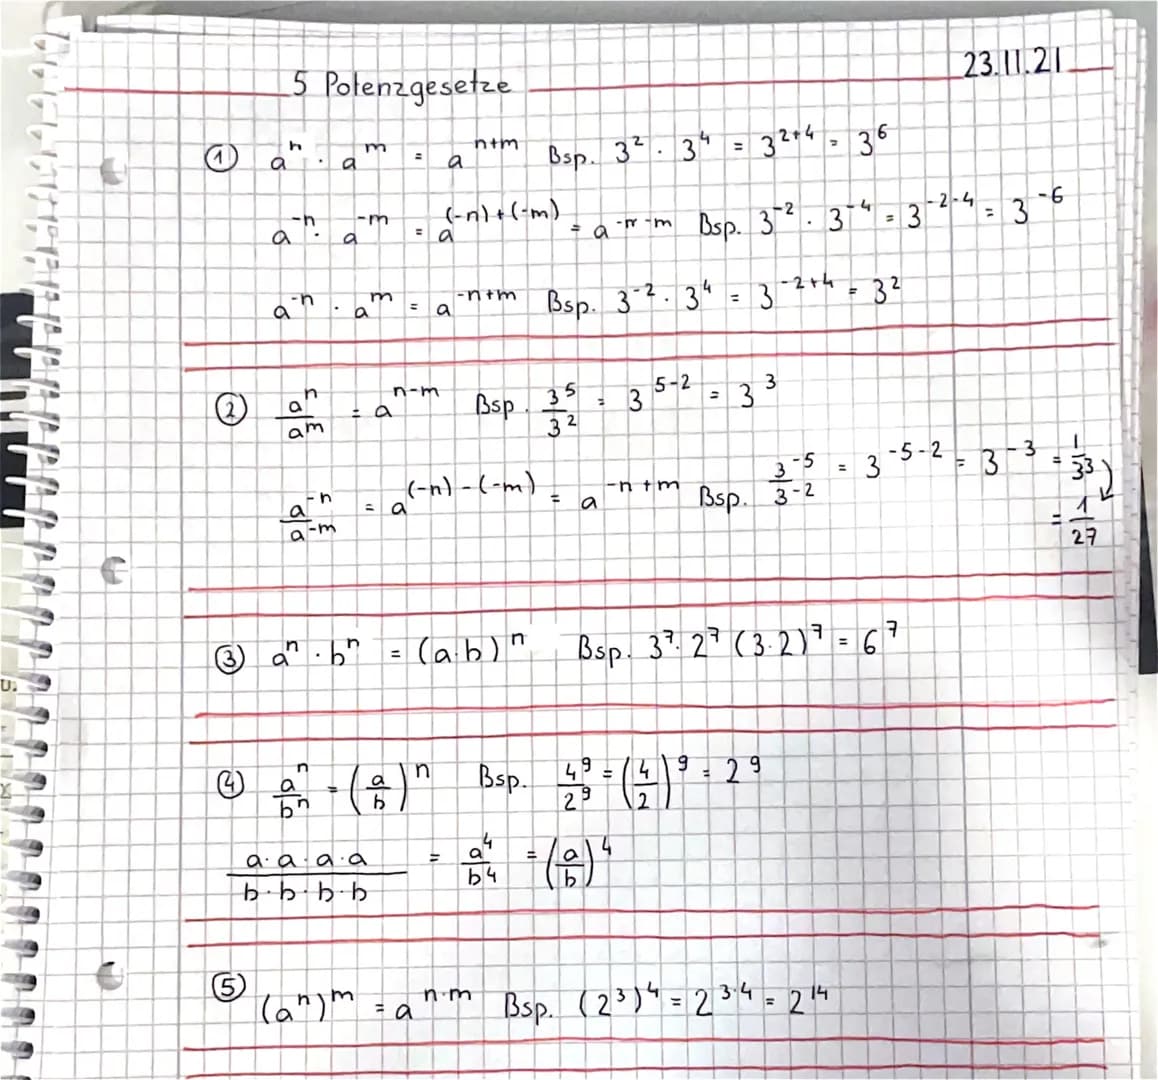 5 Potenzgesetze 23.11.21
① aⁿ · aᵐ = aⁿ⁺ᵐ Bsp. 3² · 3⁴ = 3²⁺⁴ = 3⁶
a⁻ⁿ · a⁻ᵐ = a⁽⁻ⁿ⁾⁺⁽⁻ᵐ⁾ = a⁻ⁿ⁻ᵐ Bsp. 3⁻² · 3⁻⁴ = 3⁻²⁻⁴ = 3⁻⁶
a⁻ⁿ · aᵐ = a⁻ⁿ⁺ᵐ Bsp. 3⁻² · 3⁴ = 3⁻²⁺⁴ = 3²
② aⁿ/aᵐ = aⁿ⁻ᵐ Bsp. 3⁵/3² = 3⁵⁻² = 3³
a⁻ⁿ/a⁻ᵐ = a⁽⁻ⁿ⁾⁻⁽⁻ᵐ⁾ = a⁻ⁿ⁺ᵐ Bsp. 3⁻⁵/3⁻² = 3⁻⁵⁻² = 3⁻³ = 1/3³
= 1/27
③ aⁿ · bⁿ = (a·b)ⁿ Bsp. 3⁷ · 2⁷ (3·2)⁷ = 6⁷
④ aⁿ/bⁿ = (a/b)ⁿ Bsp. 4⁹/2⁹ = (4/2)⁹ = 2⁹
a·a·a·a/b·b·b·b = a⁴/b⁴ = (a/b)⁴
⑤ (aⁿ)ᵐ = aⁿ·ᵐ Bsp. (2³)⁴ = 2³·⁴ = 2¹⁴